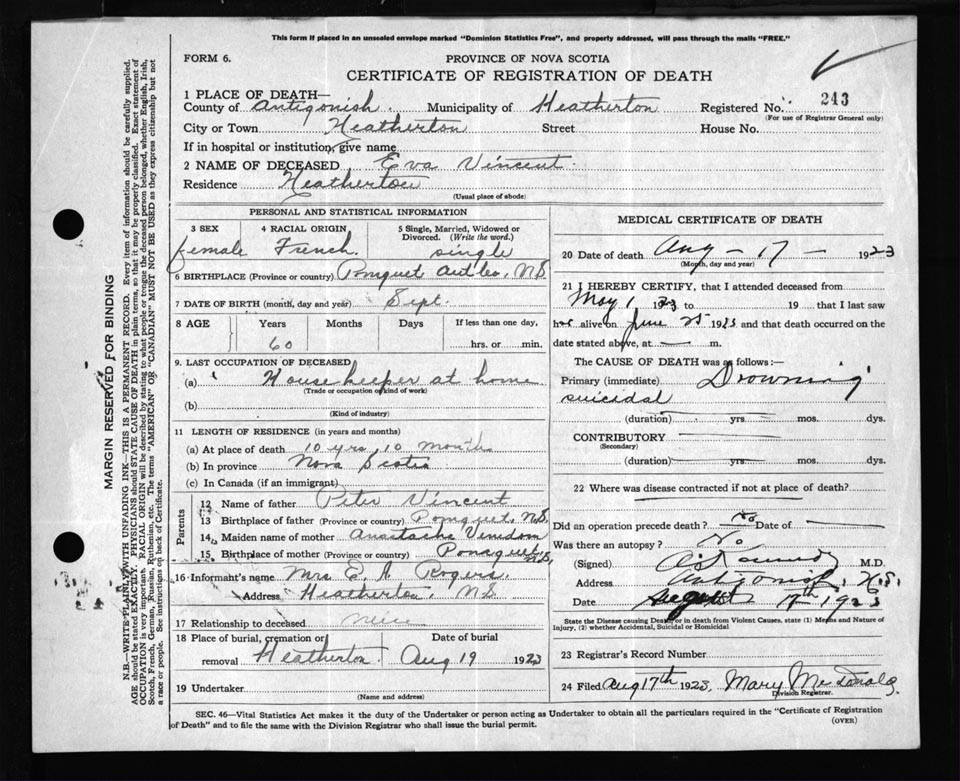 This form if placed in an unsealed envelope marked "Dominion Statistics Free", and properly addressed, will pass through the mails "FREE."
FORM 6.
PROVINCE OF NOVA SCOTIA
CERTIFICATE OF REGISTRATION OF DEATH
1 PLACE OF DEATH—
County of Antigonish. Municipality of Heatherton Registered No. 243
(For use of Registrar General only)
City or Town Heatherton Street House No.
If in hospital or institution, give name
2 NAME OF DECEASED Eva Vincent
Residence Heatherton
(Usual place of abode)
MARGIN RESERVED FOR BINDING
N.B.—WRITE PLAINLY WITH UNFADING INK—THIS IS A PERMANENT RECORD. Every item of information should be carefully supplied.
AGE should be stated EXACTLY. PHYSICIANS should STATE CAUSE OF DEATH in plain terms, so that it may be properly classified. Exact statement of
OCCUPATION is very important. RACIAL ORIGIN will be described by stating to what people or tongue the deceased person belonged, whether English, Irish,
Scotch, French, German, Russian, Ruthenian, etc. The terms "AMERICAN" OR "CANADIAN" MUST NOT BE USED as they express citizenship but not
a race or people. See instructions on back of Certificate.
PERSONAL AND STATISTICAL INFORMATION
3 SEX 4 RACIAL ORIGIN 5 Single, Married, Widowed or
Divorced. (Write the word.)
female French. single
6 BIRTHPLACE (Province or country) Pomquet N.S.
7 DATE OF BIRTH (month, day and year) Sept.
8 AGE Years Months Days If less than one day,
60 hrs. or min.
9. LAST OCCUPATION OF DECEASED
(a) Housekeeper at home
(Trade or occupation or kind of work)
(b)
(Kind of industry)
11 LENGTH OF RESIDENCE (in years and months)
(a) At place of death 10 yrs, 10 months
(b) In province Nova Scotia
(c) In Canada (if an immigrant)
Parents
12 Name of father Peter Vincent
13 Birthplace of father (Province or country) Pomquet, N.S.
14 Maiden name of mother
15 Birthplace of mother (Province or country) Pomquet N.S.
16 Informant's name Mrs E. A. Rogers
Address Heatherton, N.S.
17 Relationship to deceased niece
18 Place of burial, cremation or Date of burial
removal Heatherton. Aug 19 1923
19 Undertaker
(Name and address)
MEDICAL CERTIFICATE OF DEATH
20 Date of death Aug - 17 - 1923
(Month, day and year)
21 I HEREBY CERTIFY, that I attended deceased from
May 1 1923 to 19 that I last saw
her alive on June 25 1923 and that death occurred on the
date stated above, at — m.
The CAUSE OF DEATH was as follows:—
Primary (immediate) Drowning
suicidal
(duration) yrs mos. dys.
CONTRIBUTORY
(Secondary)
(duration) yrs mos. dys.
22 Where was disease contracted if not at place of death?
Did an operation precede death? No Date of
Was there an autopsy? No
(Signed) M.D.
Address Antigonish, N.S.
Date August 17th 1923
State the Disease causing Death, or in death from Violent Causes, state (1) Means and Nature of
Injury, (2) whether Accidental, Suicidal or Homicidal
23 Registrar's Record Number
24 Filed Aug 17th 1923, Mary McDonald.
Division Registrar.
SEC. 46—Vital Statistics Act makes it the duty of the Undertaker or person acting as Undertaker to obtain all the particulars required in the "Certificate of Registration
of Death" and to file the same with the Division Registrar who shall issue the burial permit.
(OVER)